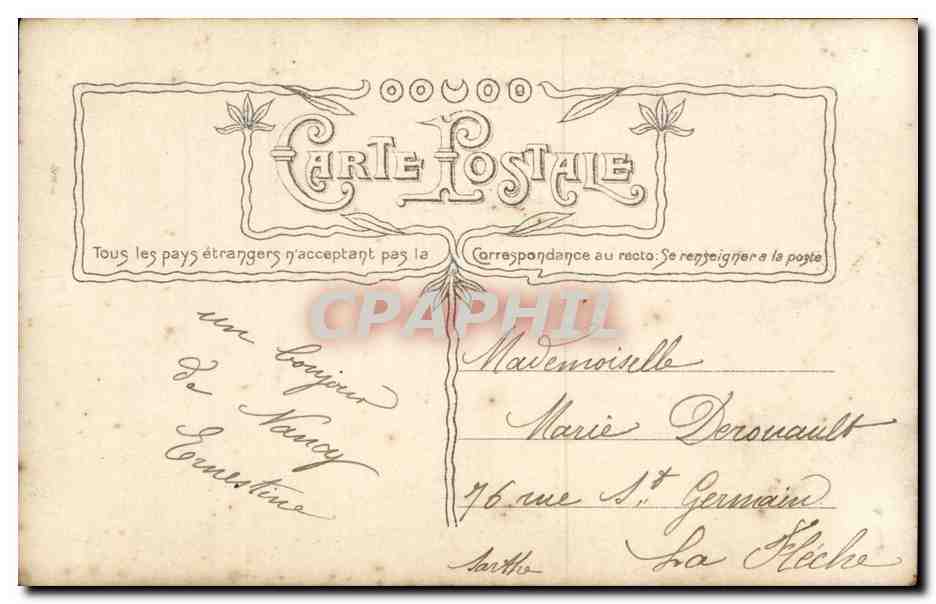 CARTE POSTALE
Tous les pays étrangers n'acceptant pas la Correspondance au recto: Se renseigner a la poste
CPAPHIL
un bonjour
de Nancy
Ernestine
Mademoiselle
Marie Derouault
76 rue St Germain
La Flèche
Sarthe